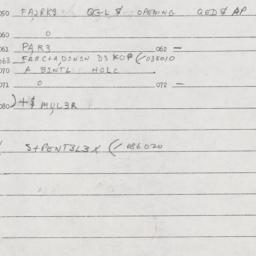 050 FAJRKS QGL $ OPENING QED$ AP
060 0
061 PAR3 062 —
063 FARCIA,DSNSN DS KOP (/038010
070 A BINTL HOLC
071 0 072 —
080 )+$ MUL3R
S+PENT3L3X (/086020